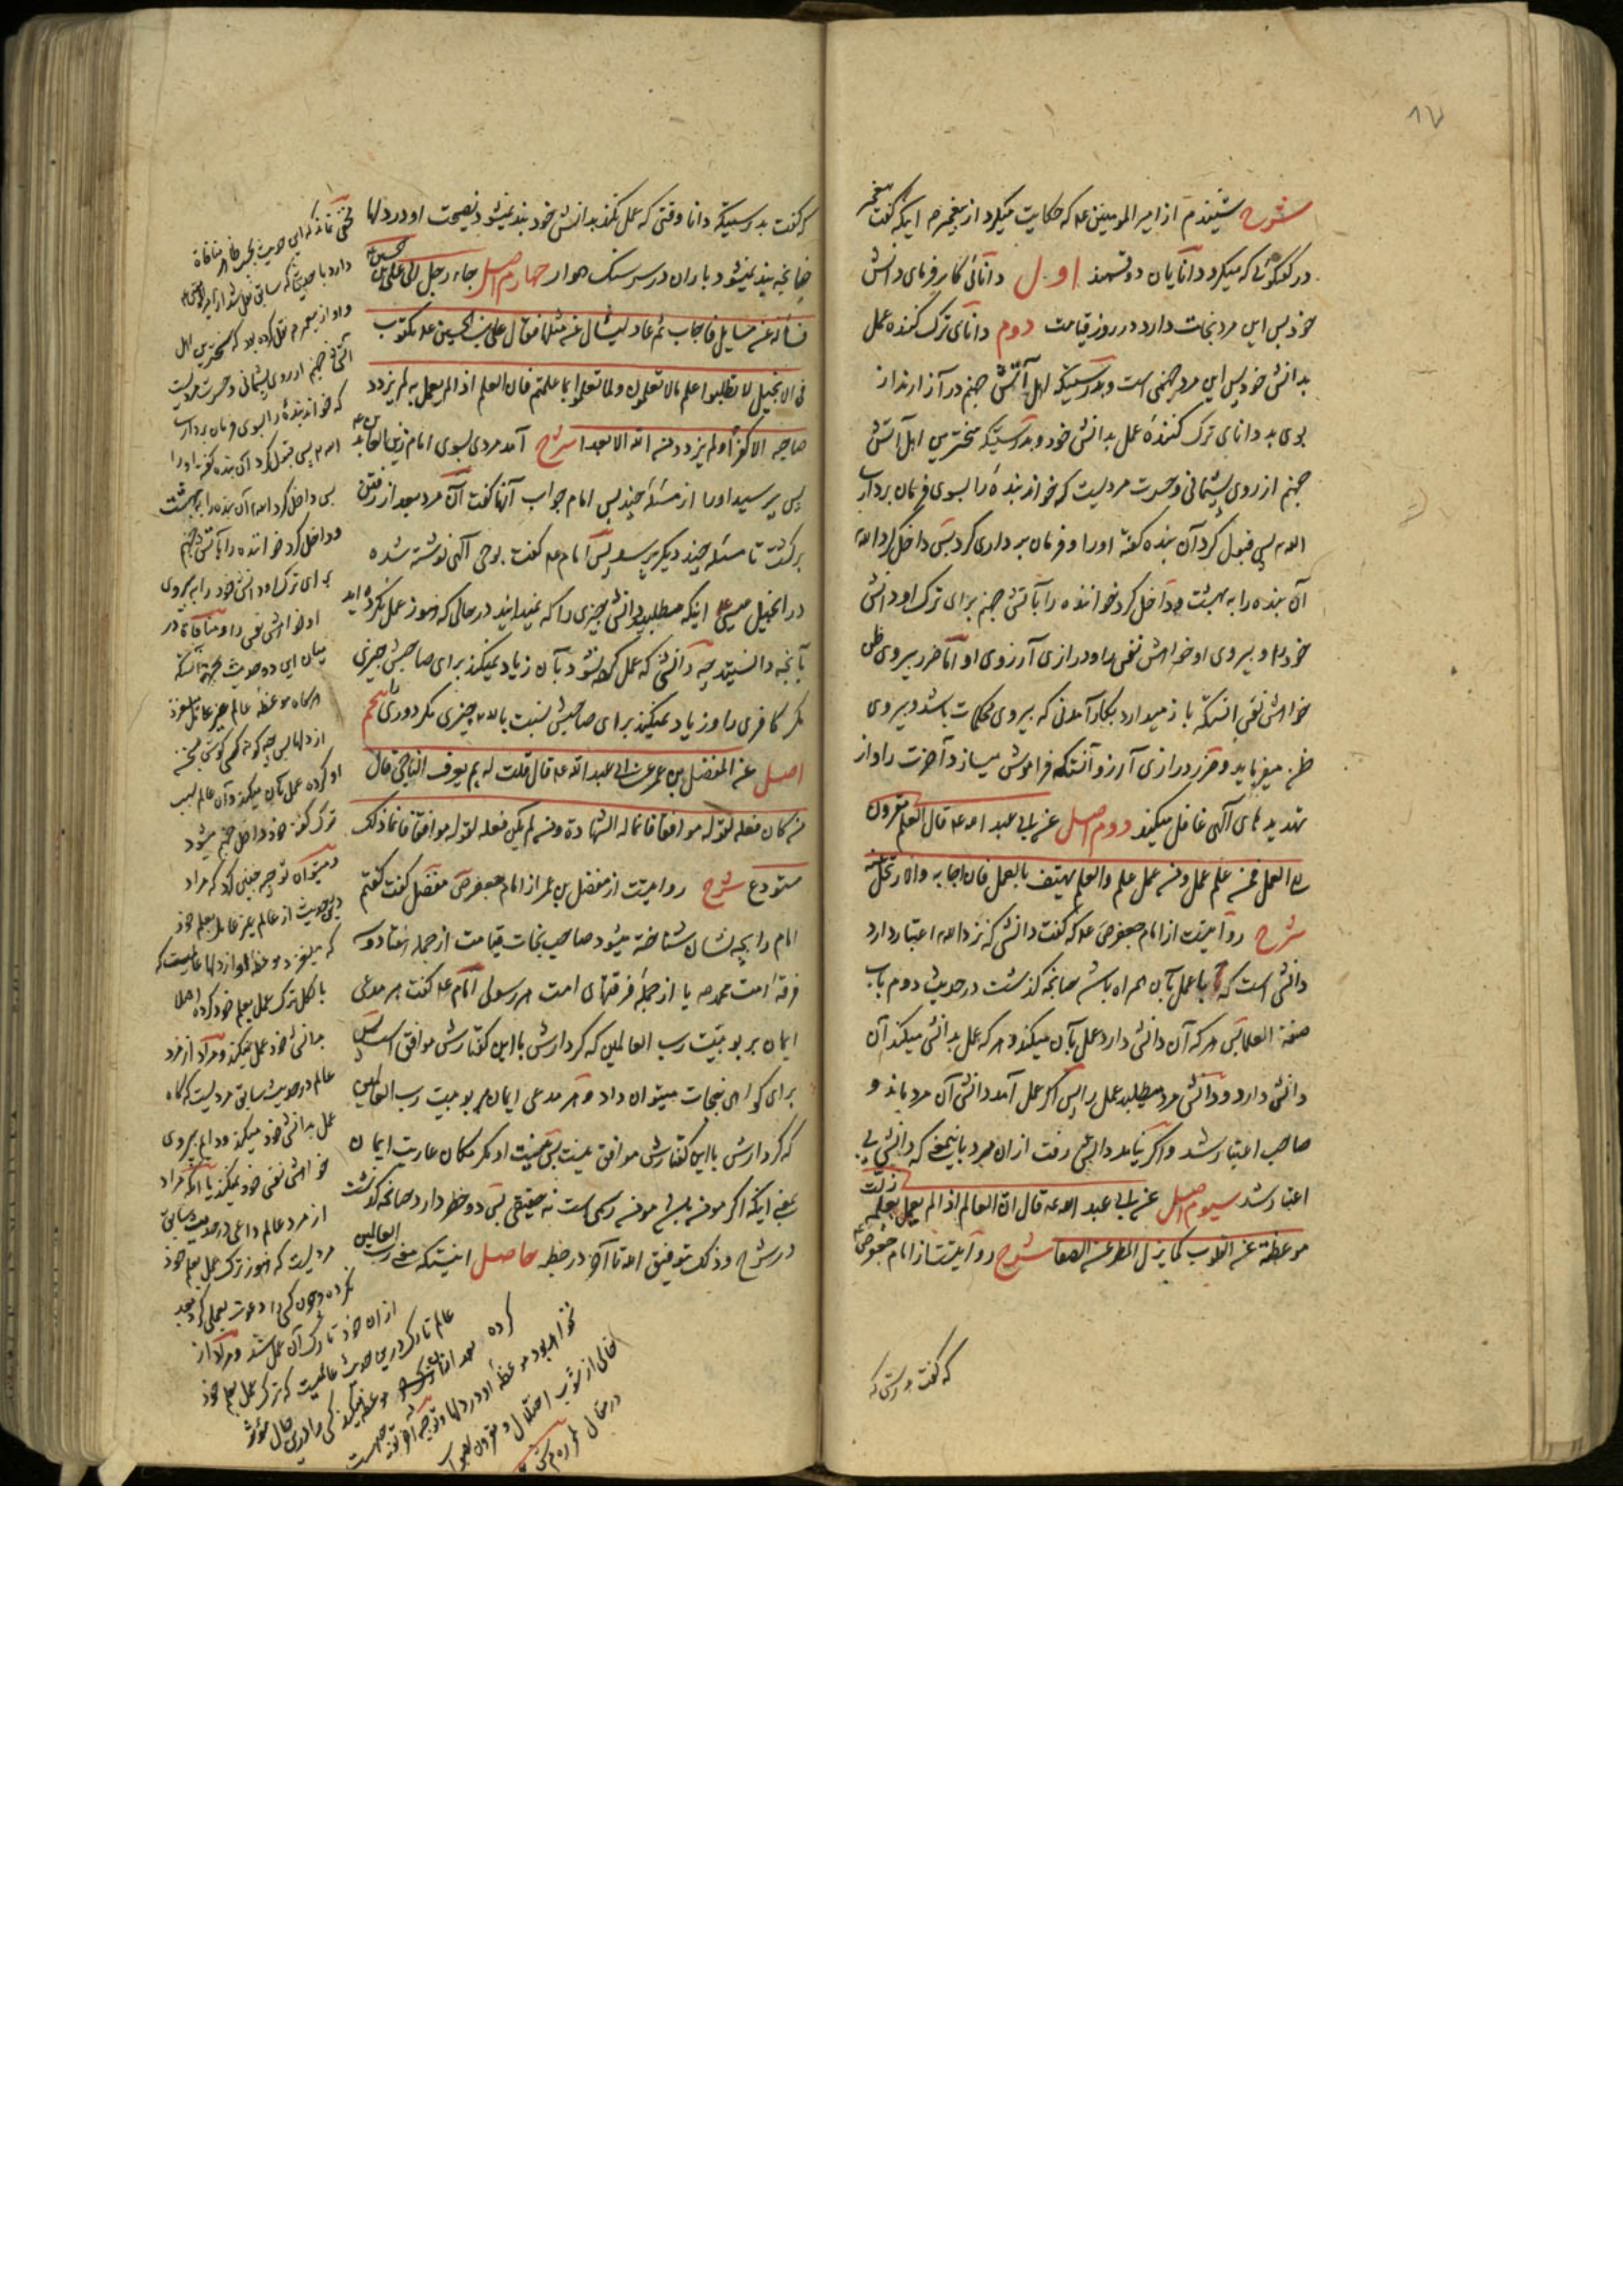 ۸۷
شرح شنیدم از امیر المومنین عه که حکایت میکرد از پیغمبر ص اینکه گفت پیغمبر
در گفتگوئی که میکرد دانایان دو قسمند اول دانائی کارفرمای دانش
خود پس این مرد نجات دارد در روز قیامت دوم دانای ترک کننده عمل
بدانش خود پس این مرد جهنمی است و بدرستیکه اهل آتش جهنم در آزارند از
بوی بد دانای ترک کنندهٔ عمل بدانش خود و بدرستیکه سختترین اهل آتش
جهنم از روی پشیمانی و حسرت مردیست که خواند بندهٔ را بسوی فرمان برداری
الله پس قبول کرد آن بنده گفته او را و فرمان برداری کرد پس داخل کرد الله
آن بنده را به بهشت و داخل کرد خواننده را بآتش جهنم برای ترک او دانش
خود را و پیروی او خواهش نفس را و درازی آرزوی او اما ضرر پیروی
خواهش نفس اینکه باز میدارد بکار آمدنی که پیروی محکمات باشد و پیروی
ظن میفرماید و ضرر درازی آرزو آنستکه فراموش میسازد آخرت را و از
تهدیدهای آلهی غافل میکند دوم اصل عن ابی عبد الله عه قال العلم مقرون
الی العمل فمن علم عمل ومن عمل علم والعلم یهتف بالعمل فان اجابه والا ارتحل عنه
شرح روایتست از امام جعفر ص عه که گفت دانشی که نزد الله اعتبار دارد
دانشی است که با عمل بآن همراه باشد چنانچه گذشت در حدیث دوم باب
صفة العلما پس هر که آن دانش دارد عمل بآن میکند و هر که عمل بدانش میکند آن
دانش دارد و دانش مرد میطلبد عمل را پس اگر عمل آمد دانش آن مرد باند و
صاحب اعتبار شد و اگر نیامد دانش رفت از ان مرد باینمعنی که دانش بی
اعتبار شد سیوم اصل عن ابی عبد الله عه قال ان العالم اذا لم یعمل بعلمه زلت
موعظته عن القلوب کما یزل المطر عن الصفا شرح روایتست از امام جعفر ص عه
که گفت بدرستیکه
که گفت بدرستیکه دانا وقتی که عمل نکند بدانش خود بند نمیشود نصیحت او در دلها
چنانچه بند نمیشود باران در سر سنگ هموار چهارم اصل جاء رجل الی علی بن الحسین عه
فسأله عن مسایل فاجاب ثم عاد لیسأل عن مثلها فقال علی بن الحسین عه مکتوب
فی الانجیل لا تطلبوا علم ما لا تعلمون ولما تعملوا بما علمتم فان العلم اذا لم یعمل به لم یزدد
صاحبه الا کفرا ولم یزدد من الله الا بعدا شرح آمد مردی بسوی امام زین العابدین عه
پس پرسید او را از مسئلهٔ چند پس امام جواب آنها گفت آن مرد بعد از رفتن
برگشت تا مسئله چند دیگر پرسد پس امام عه گفت بوحی آلهی نوشته شده
در انجیل عیسی عه اینکه مطلبید دانش چیزی را که نمیدانید در حالی که هنوز عمل نکرده اید
بآنچه دانستید چه دانشی که عمل کرده نشود بآن زیاد نمیکند برای صاحبش چیزی
مگر کافری را و زیاد نمیکند برای صاحبش نسبت بالله چیزی مگر دوری پنجم
اصل عن المفضل بن عمر عن ابی عبد الله عه قال قلت له بم یعرف الناجی قال
من کان فعله لقوله موافقا فانما له الشهادة ومن لم یکن فعله لقوله موافقا فانما ذلک
مستودع شرح روایتست از مفضل بن عمر از امام جعفر ص مفضل گفت گفتم
امام را بچه نشان شناخته میشود صاحب نجات قیامت از جمله هفتاد و سه
فرقه امت محمد ص یا از جملهٔ فرقهای امت هر رسول امام عه گفت هر مدعی
ایمان بربوبیّت رب العالمین که کردارش با این گفتارش موافق است پس
برای گواهی نجات میتوان داد و هر مدعی ایمان بربوبیت رب العالمین
که کردارش با این گفتارش موافق نیست پس نیست او مگر مکان عاریت ایمان
یعنی اینکه اگر مومن باشد مومن رسمی است نه حقیقی پس دو خطر دارد چنانچه گذشت
در شرح وذلک بتوفیق الله تا آخر در خطبه حاصل اینستکه معنی رب العالمین
مخفی نماند که این حدیث بحسب ظاهر منافاة
دارد با حدیثی که سابق نقل شد از امیر المومنین عه
و او از پیغمبر ص نقل کرده بود که سختترین اهل
آتش جهنم از روی پشیمانی و حسرت مردیست
که خواند بندهٔ را بسوی فرمان برداری
الله پس قبول کرد آن بنده گفته او را
پس داخل کرد الله آن بنده را به بهشت
و داخل کرد خواننده را بآتش جهنم
برای ترک او دانش خود را به پیروی
او خواهش نفس را و منافاة در
میان این دو حدیث بجهة آنستکه
هرگاه موعظهٔ عالم غیر عامل بلغزد
از دلها پس چگونه کسی گوش بسخن
او کرده عمل بآن میکند و آن عالم بسبب
ترک گفته خود داخل جهنم میشود
و میتوان توجیه چنین کرد که مراد
درین حدیث از عالم غیر عامل بعلم خود
که میلغزد موعظه او از دلها عالمیست که
بالکل ترک عمل بعلم خود کرده اصلا
بدانش خود عمل نمیکند و مراد از مرد
عالم در حدیث سابق مردیست که گاه
عمل بدانش خود میکند و دایم پیروی
خواهش نفس خود نمیکند یا آنکه مراد
از مرد عالم داعی در حدیث سابق
مردیست که هنوز ترک عمل بعلم خود
نکرده و چون کسی را دعوت بعملی کرد بعد
از ان خود تارک آن عمل شد و مراد از
عالم تارک درین حدیث عالمیست که ترک عمل بعلم خود
کرده بعد از ان موعظه میکند کسی را درین حال مؤثر
نخواهد بود موعظهٔ او در دلها و توجیه
خالی از شوب اختلال و مقرون بصواب
در مقال